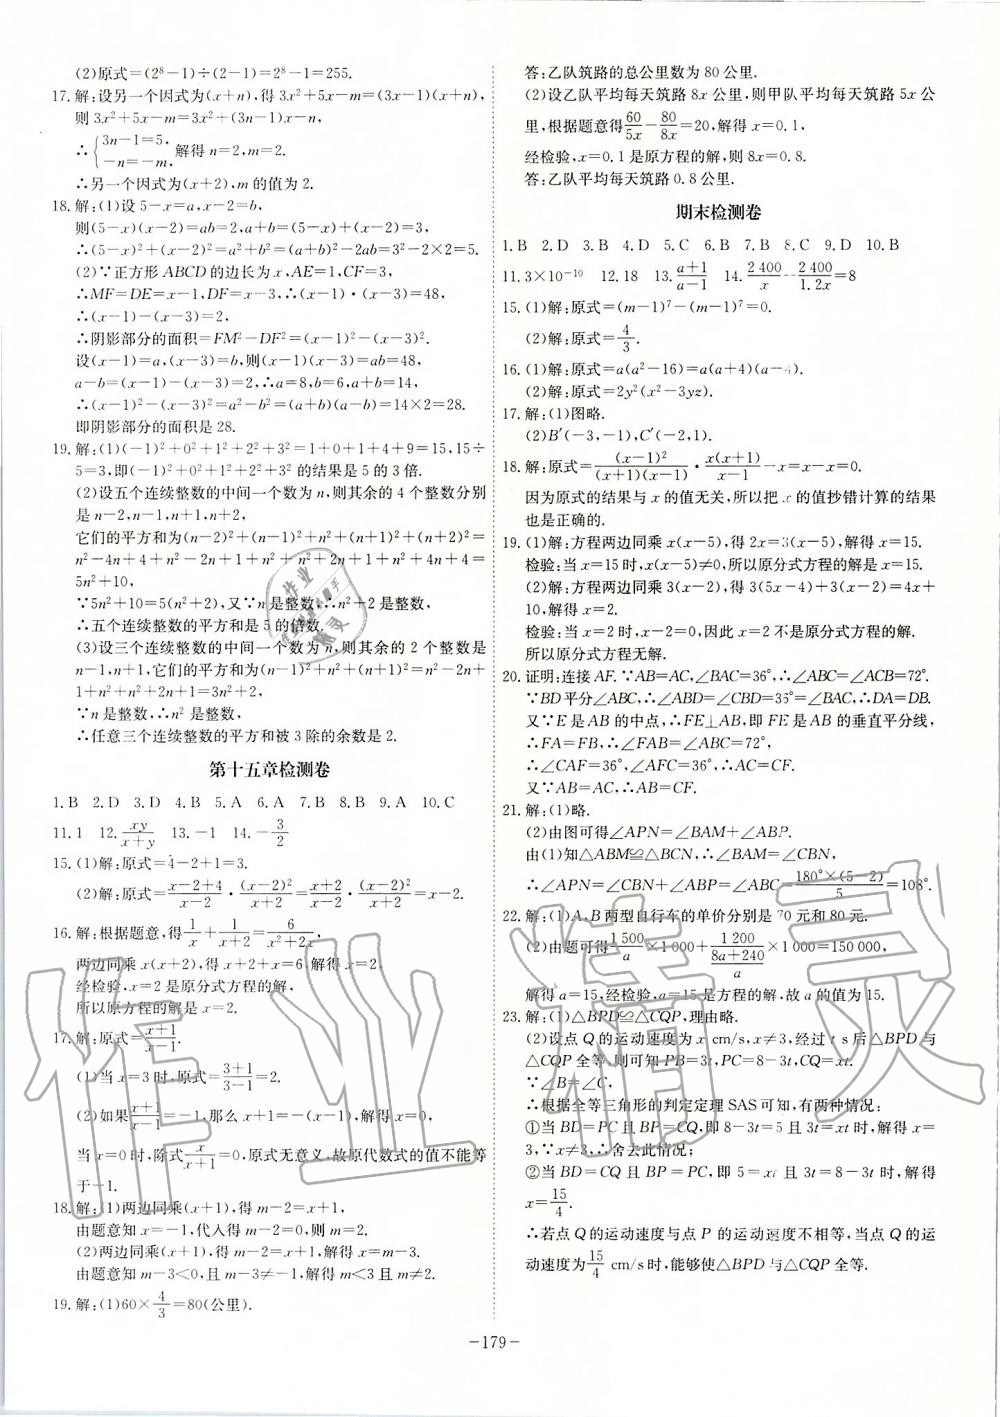 (2)原式=(2⁸-1)÷(2-1)=2⁸-1=255.
17.解:设另一个因式为(x+n),得 3x²+5x-m=(3x-1)(x+n),
则 3x²+5x-m=3x²+(3n-1)x-n,
∴{3n-1=5, -n=-m, 解得 n=2,m=2.
∴另一个因式为(x+2),m 的值为 2.
18.解:(1)设 5-x=a,x-2=b,
则(5-x)(x-2)=ab=2,a+b=(5-x)+(x-2)=3,
∴(5-x)²+(x-2)²=a²+b²=(a+b)²-2ab=3²-2×2=5.
(2)∵正方形 ABCD 的边长为 x,AE=1,CF=3,
∴MF=DE=x-1,DF=x-3,∴(x-1)·(x-3)=48,
∴(x-1)-(x-3)=2,
∴阴影部分的面积=FM²-DF²=(x-1)²-(x-3)².
设(x-1)=a,(x-3)=b,则(x-1)(x-3)=ab=48,
a-b=(x-1)-(x-3)=2,∴a=8,b=6,a+b=14,
∴(x-1)²-(x-3)²=a²-b²=(a+b)(a-b)=14×2=28.
即阴影部分的面积是 28.
19.解:(1)(-1)²+0²+1²+2²+3²=1+0+1+4+9=15,15÷
5=3,即(-1)²+0²+1²+2²+3² 的结果是 5 的 3 倍.
(2)设五个连续整数的中间一个数为 n,则其余的 4 个整数分别
是 n-2,n-1,n+1,n+2,
它们的平方和为(n-2)²+(n-1)²+n²+(n+1)²+(n+2)²=
n²-4n+4+n²-2n+1+n²+n²+2n+1+n²+4n+4=
5n²+10,
∵5n²+10=5(n²+2),又∵n 是整数,∴n²+2 是整数,
∴五个连续整数的平方和是 5 的倍数.
(3)设三个连续整数的中间一个数为 n,则其余的 2 个整数是
n-1,n+1,它们的平方和为(n-1)²+n²+(n+1)²=n²-2n+
1+n²+n²+2n+1=3n²+2,
∵n 是整数,∴n² 是整数,
∴任意三个连续整数的平方和被 3 除的余数是 2.
第十五章检测卷
1.B 2.D 3.D 4.B 5.A 6.A 7.B 8.B 9.A 10.C
11.1 12.xy/(x+y) 13.-1 14.-3/2
15.(1)解:原式=4-2+1=3.
(2)解:原式=(x-2+4)/(x-2)·(x-2)²/(x+2)=(x+2)/(x-2)·(x-2)²/(x+2)=x-2.
16.解:根据题意,得1/x+1/(x+2)=6/(x²+2x),
两边同乘 x(x+2),得 x+2+x=6,解得 x=2,
经检验,x=2 是原分式方程的解,
所以原方程的解是 x=2.
17.解:原式=(x+1)/(x-1).
(1)当 x=3 时,原式=(3+1)/(3-1)=2.
(2)如果(x+1)/(x-1)=-1,那么 x+1=-(x-1),解得 x=0,
当 x=0 时,除式x/(x+1)=0,原式无意义,故原代数式的值不能等
于-1.
18.解:(1)两边同乘(x+1),得 m-1-x=0,
由题意知 x=-1,代入得 m-2=0,则 m=2.
(2)两边同乘(x+1),得 m-3=x,解得 x=m-3.
由题意知 m-3<0,且 m-3≠-1,解得 m<3 且 m≠2.
19.解:(1)60×4/3=80(公里).
答:乙队筑路的总公里数为 80 公里.
(2)设乙队平均每天筑路 8x 公里,则甲队平均每天筑路 5x 公
里,根据题意得60/5x-80/8x=20,解得 x=0.1,
经检验,x=0.1 是原方程的解,则 8x=0.8.
答:乙队平均每天筑路 0.8 公里.
期末检测卷
1.B 2.D 3.B 4.D 5.C 6.B 7.B 8.C 9.D 10.B
11.3×10⁻¹⁰ 12.18 13.(a+1)/(a-1) 14.2 400/x-2 400/1.2x=8
15.(1)解:原式=(m-1)⁷-(m-1)⁷=0.
(2)解:原式=4/3.
16.(1)解:原式=a(a²-16)=a(a+4)(a-4).
(2)解:原式=2y²(x²-3yz).
17.解:(1)图略.
(2)B′(-3,-1),C′(-2,1).
18.解:原式=(x-1)²/(x+1)(x-1)·x(x+1)/(x-1)-x=x-x=0.
因为原式的结果与 x 的值无关,所以把 x 的值抄错计算的结果
也是正确的.
19.(1)解:方程两边同乘 x(x-5),得 2x=3(x-5),解得 x=15.
检验:当 x=15 时,x(x-5)≠0,所以原分式方程的解是 x=15.
(2)解:方程两边同乘 3(x-2),得 3(5x-4)+3(x-2)=4x+
10,解得 x=2.
检验:当 x=2 时,x-2=0,因此 x=2 不是原分式方程的解.
所以原分式方程无解.
20.证明:连接 AF.∵AB=AC,∠BAC=36°,∴∠ABC=∠ACB=72°.
∵BD平分∠ABC,∴∠ABD=∠CBD=36°=∠BAC,∴DA=DB.
又∵E 是 AB 的中点,∴FE⊥AB,即 FE 是 AB 的垂直平分线,
∴FA=FB,∴∠FAB=∠ABC=72°,
∴∠CAF=36°,∠AFC=36°,∴AC=CF.
又∵AB=AC,∴AB=CF.
21.解:(1)略.
(2)由图可得∠APN=∠BAM+∠ABP.
由(1)知△ABM≌△BCN,∴∠BAM=∠CBN,
∴∠APN=∠CBN+∠ABP=∠ABC=180°×(5-2)/5=108°.
22.解:(1)A、B 两型自行车的单价分别是 70 元和 80 元.
(2)由题可得1 500/a×1 000+1 200/((8a+240)/a)×1 000=150 000,
解得 a=15,经检验,a=15 是方程的解,故 a 的值为 15.
23.解:(1)△BPD≌△CQP,理由略.
(2)设点 Q 的运动速度为 x cm/s,x≠3,经过 t s后△BPD 与
△CQP 全等,则可知 PB=3t,PC=8-3t,CQ=xt.
∵∠B=∠C,
∴根据全等三角形的判定定理 SAS 可知,有两种情况:
①当 BD=PC 且 BP=CQ,即 8-3t=5 且 3t=xt 时,解得 x=
3,∵x≠3,∴舍去此情况;
②当 BD=CQ 且 BP=PC,即 5=xt 且 3t=8-3t 时,解得
x=15/4.
∴若点 Q 的运动速度与点 P 的运动速度不相等,当点 Q 的运
动速度为15/4 cm/s时,能够使△BPD 与△CQP 全等.
-179-
作业精灵